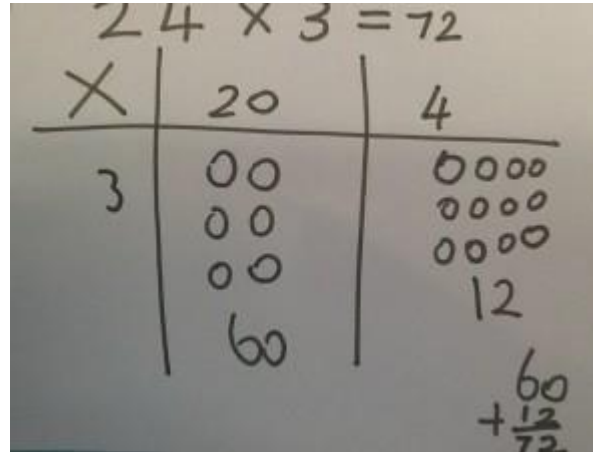 24 × 3 = 72
× 20 4
3
60 12
60
+ 12
72